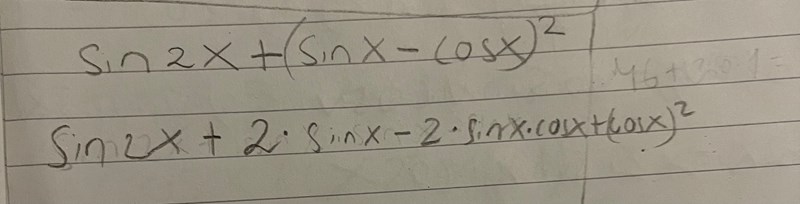 sin 2x + (sin x - cos x)²
sin 2x + 2 · sin x - 2 · sin x · cos x + (cos x)²